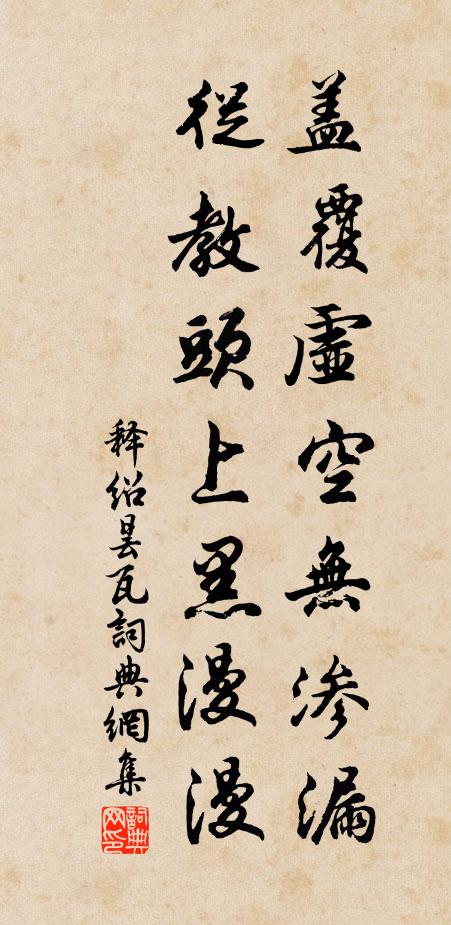 盖覆虛空無滲漏
從教頭上黑漫漫
釋紹曇瓦詞典網集
詞典網印